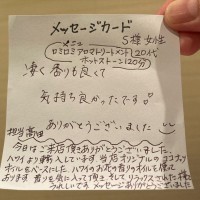 メッセージカード
S様 女性
メニュー
ロミロミアロマトリートメント120代
ホットストーン120分
凄く香りも良くて
気持ち良かったです
ありがとうございました
担当高田
今日はご来店頂きありがとうございました
ハワイより輸入しています当店オリジナルのココナッツ
オイルをベースにしたハワイのお花の香りのオイルを使って
おります 香りを気に入って頂き そして リラックスされた様で
うれしいです メッセージありがとうございました